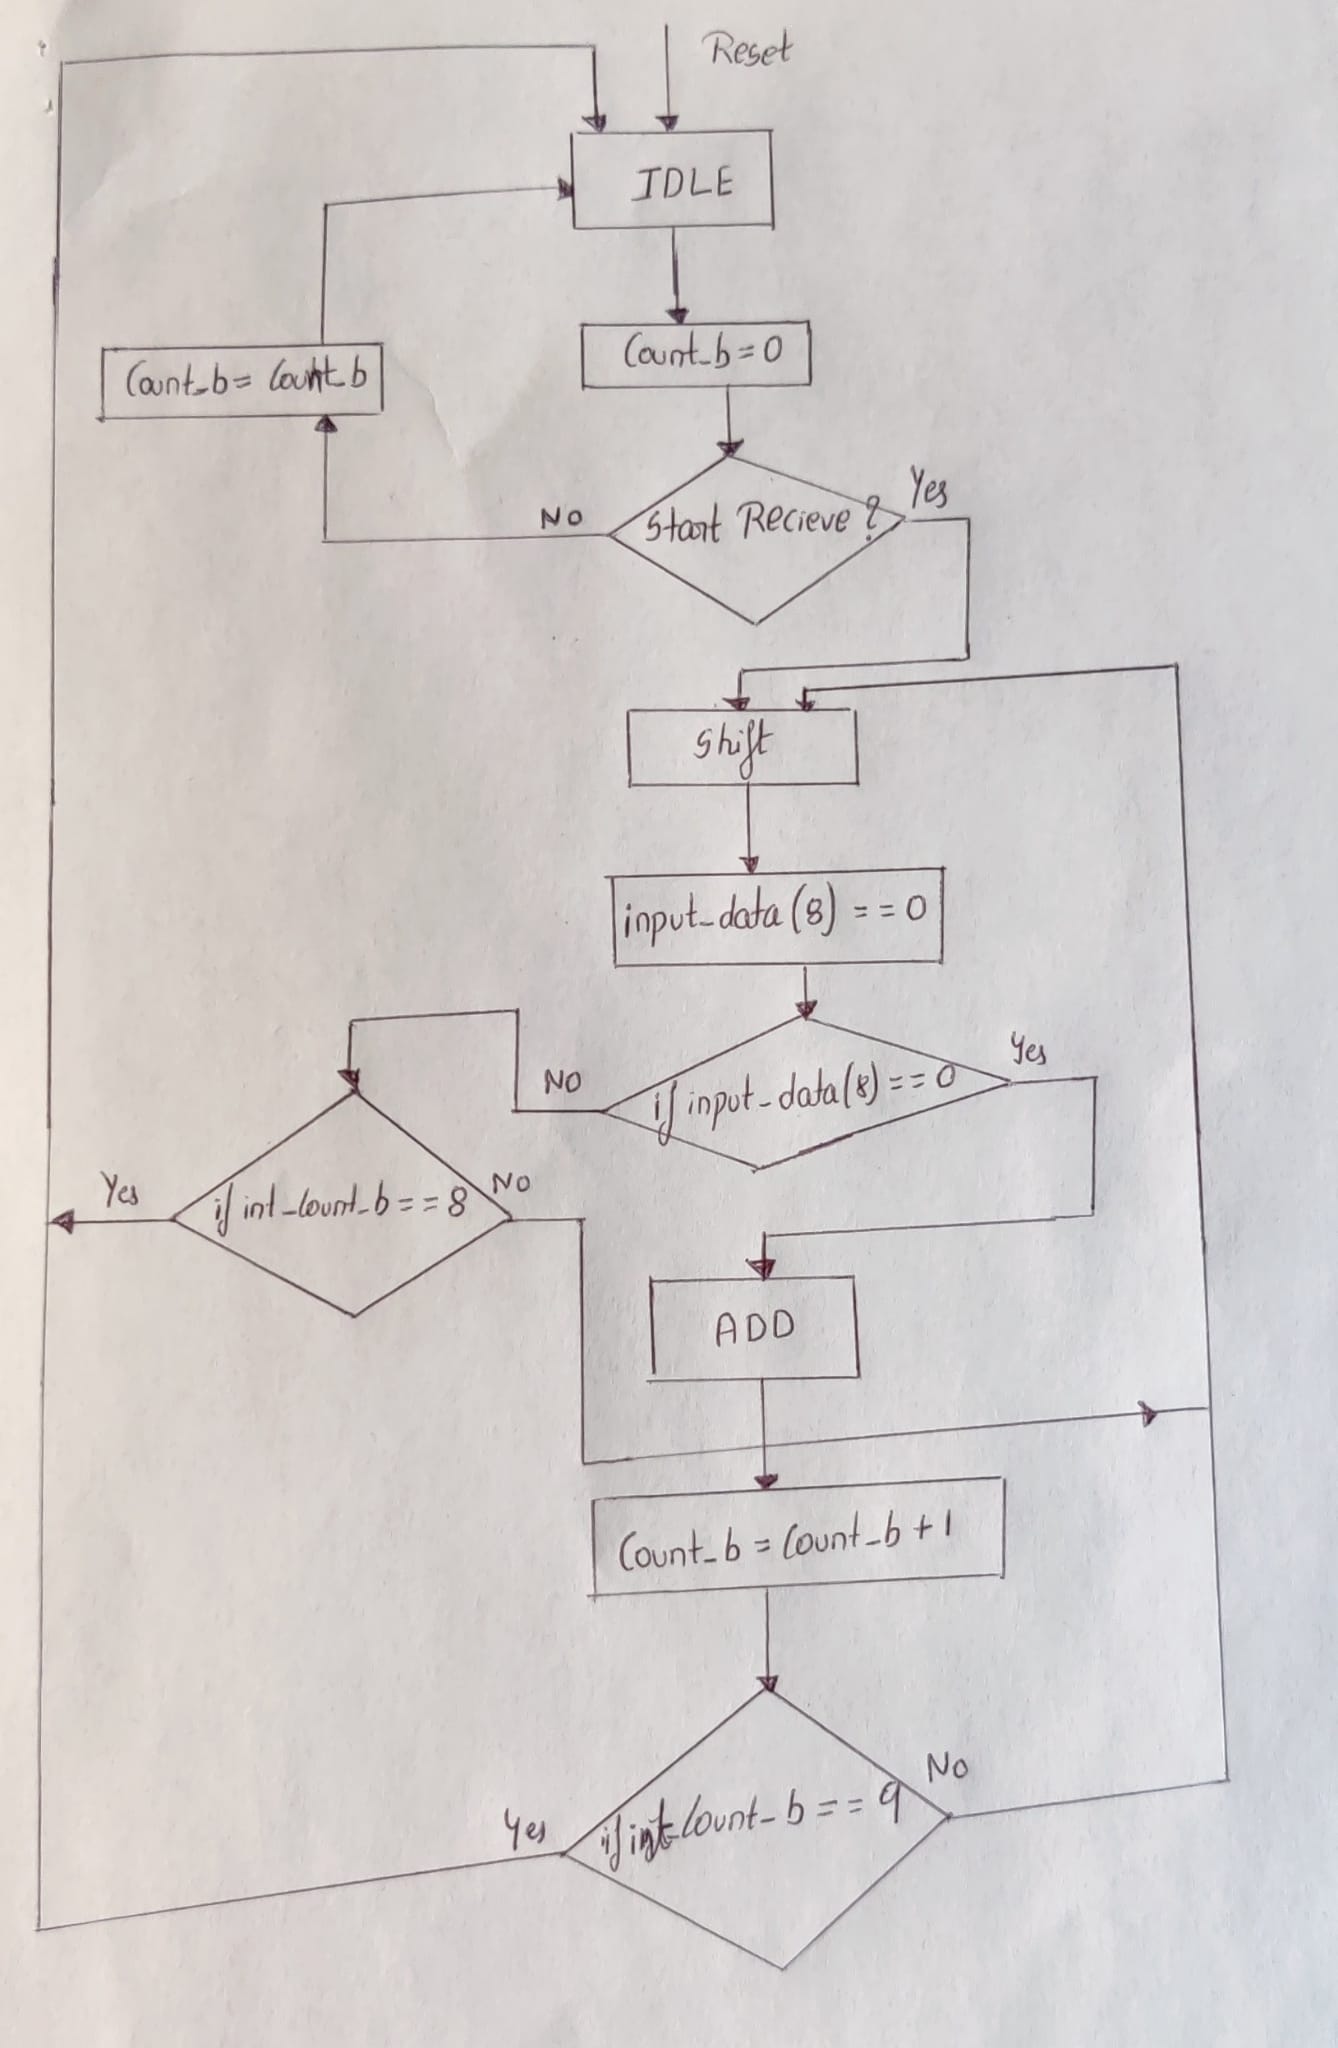 Reset
IDLE
Count_b = 0
Count_b = Count_b
Start Recieve ?
NO
Yes
Shift
input_data (8) = = 0
if input_data(8) = = 0
NO
Yes
if int_Count_b = = 8
Yes
NO
ADD
Count_b = Count_b + 1
if int_Count_b = = 9
Yes
NO